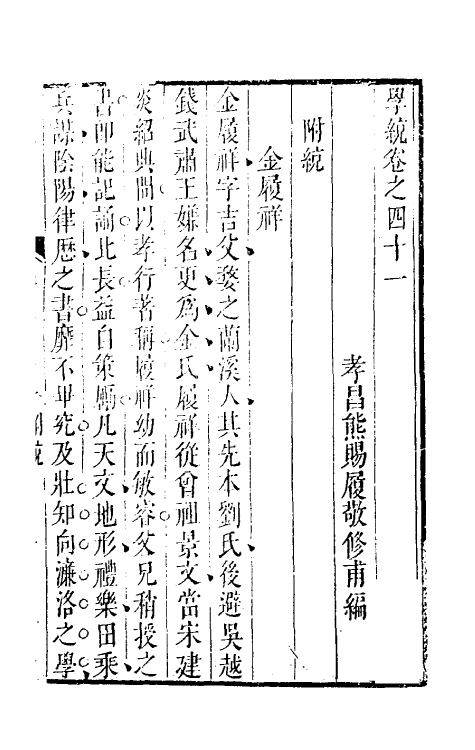 學統卷之四十一
孝昌熊賜履敬修甫編
附統
金履祥
金履祥字吉父婺之蘭溪人其先本劉氏後避吳越
錢武肅王嫌名更為金氏履祥從曾祖景文當宋建
炎紹興間以孝行著稱履祥幼而敏睿父兄稍授之
書即能記誦比長益自策勵凡天文地形禮樂田乘
兵謀陰陽律曆之書靡不畢究及壯知向濂洛之學